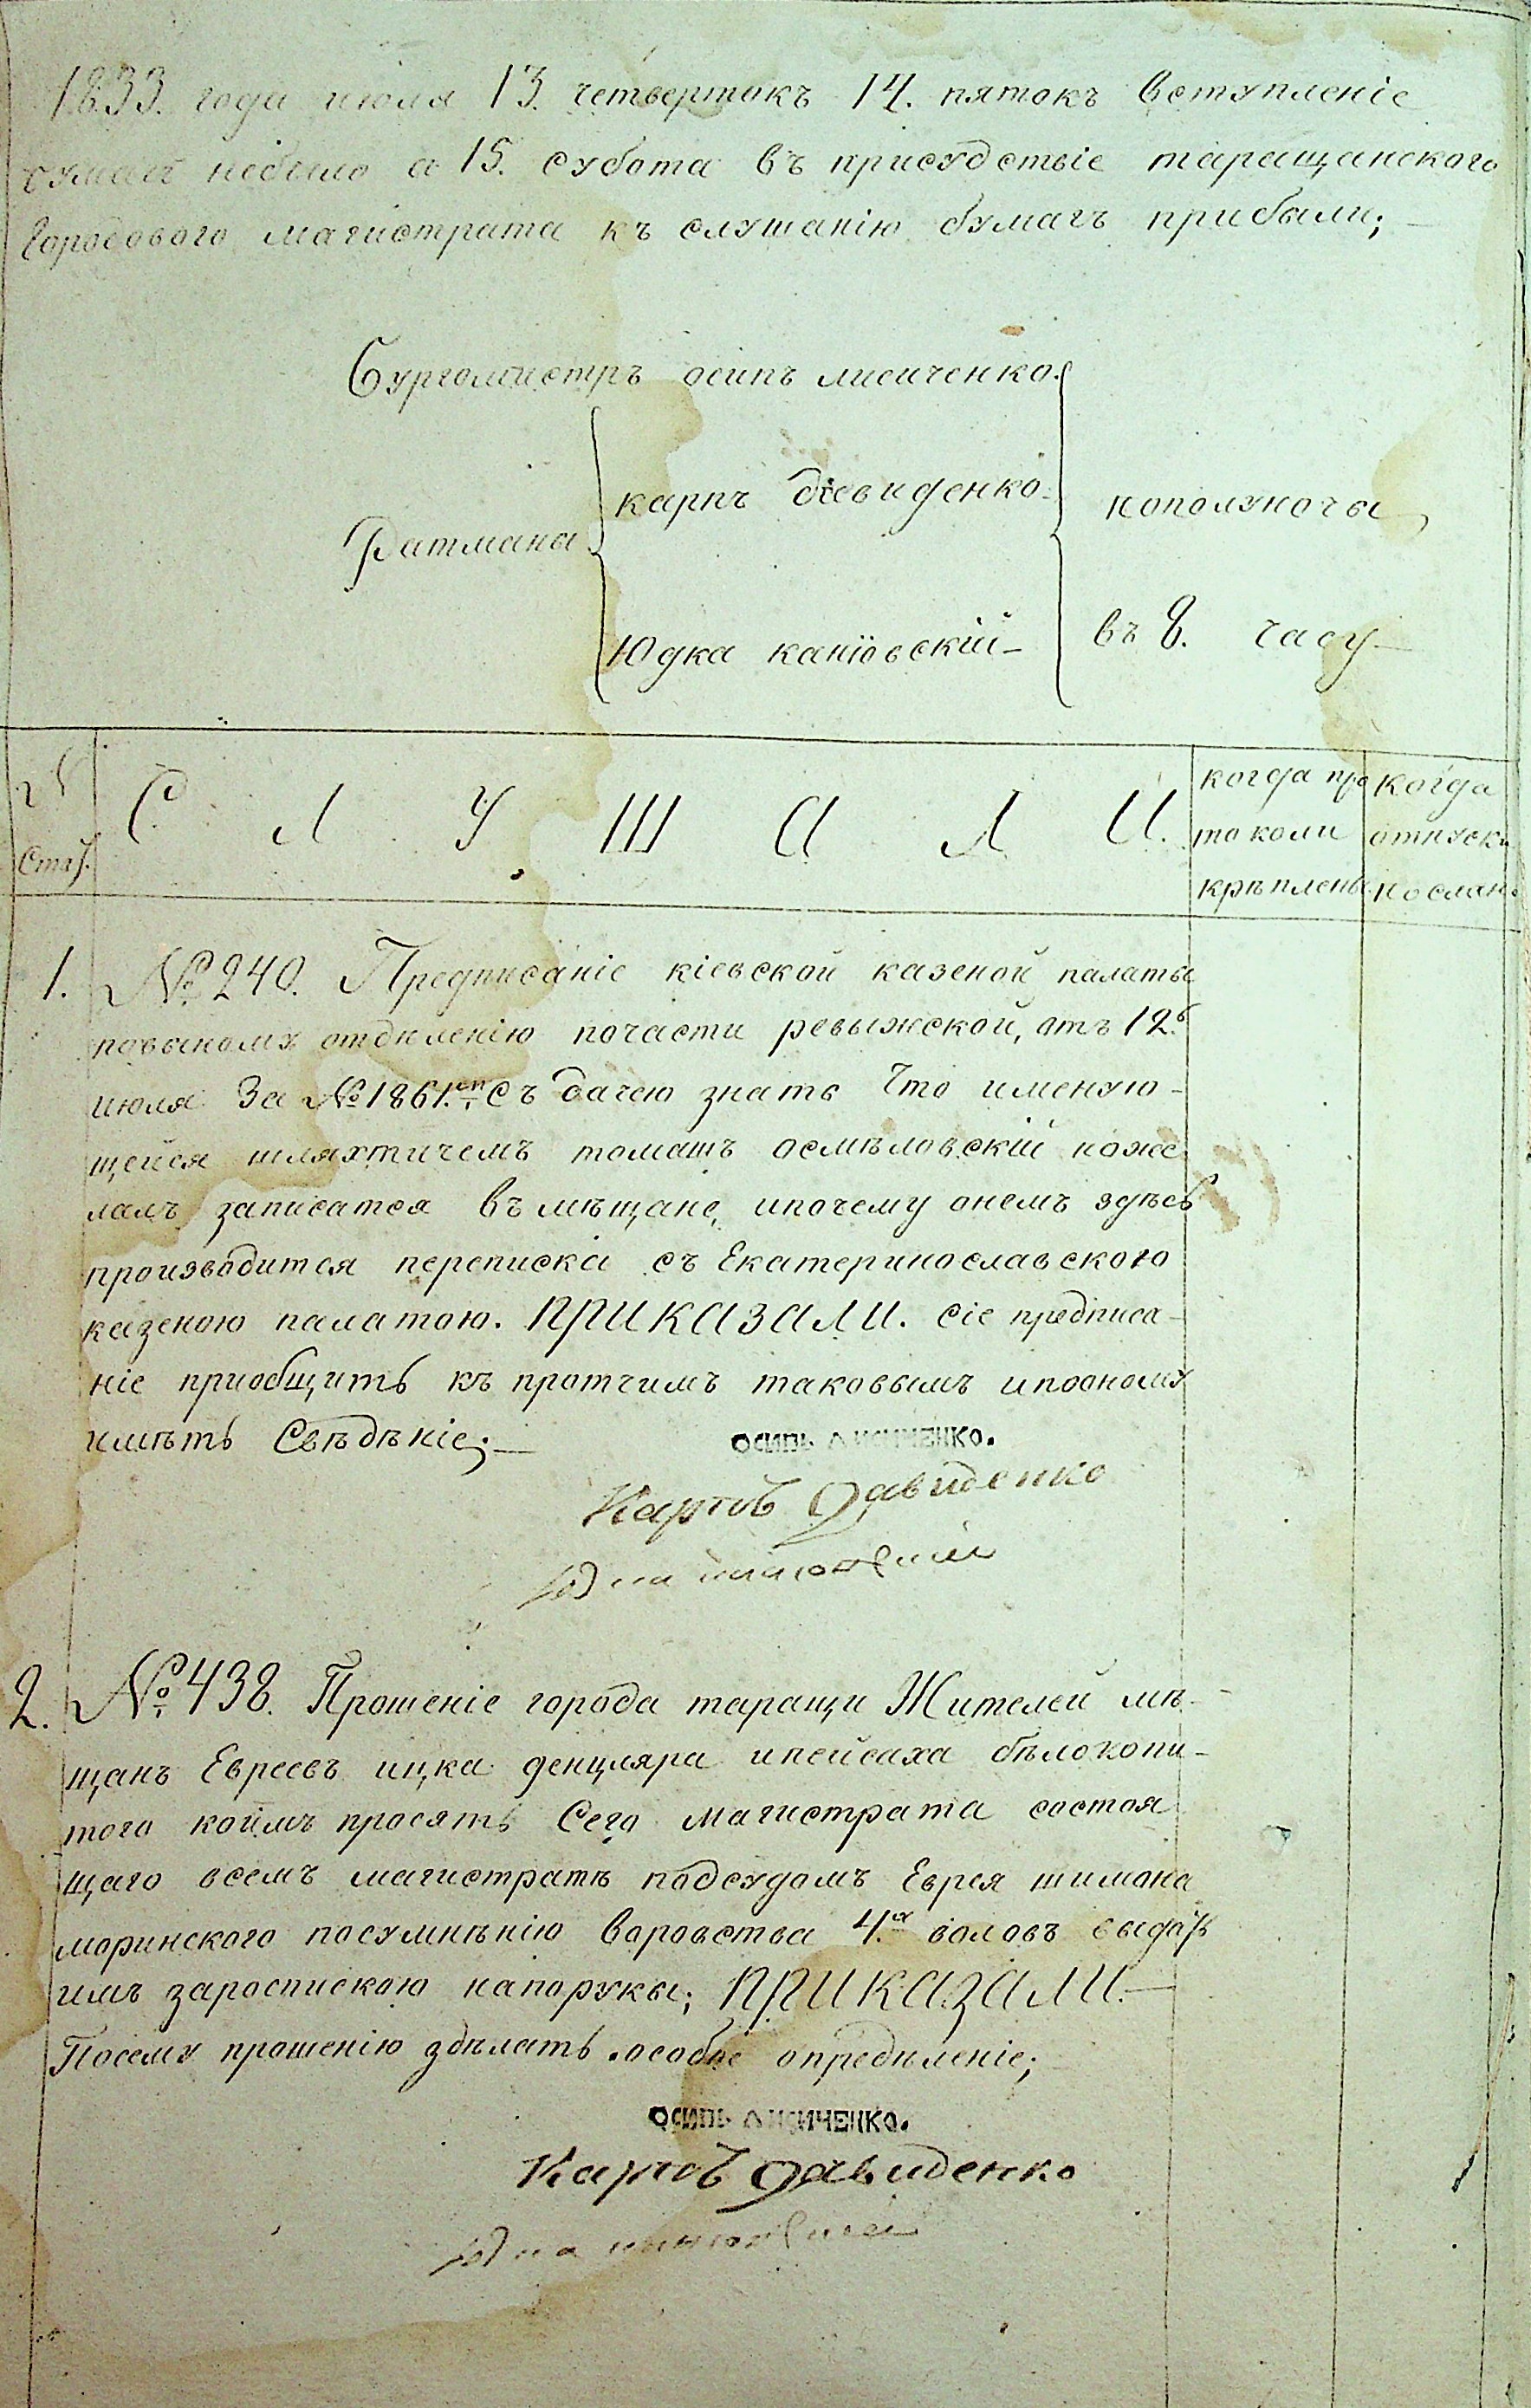 1833. года июля 13. четвертокъ 14. пятокъ вступленіе
бумагъ небыло а 15. субота въ присудствіе таращанского
Городового магистрата къ слушанію бумагъ прибыли;
Бургомистръ осипъ лисиченко.
карпъ давиденко.
Ратманы
пополуночы
Юдка каніовскій
въ 8. часу
№
Стат.
С Л У Ш А Л И.
когда про
токоли
крѣплены
когда
отпуски
послан.
1. № 240. Предписаніе кіевской казеной палаты
отдѣленію почасти ревыжской, отъ 12.
июля За № 1861. съ дачею знать Что именую-
щейся шляхтичемъ томашъ осмѣловскій поже
лалъ записатся въ мѣщане, ипочему онемъ здѣсь
производится переписка съ Екатеринославского
казеною палатою. ПРИКАЗАЛИ. сіе предписа-
ніе приобщить къ протчимъ таковымъ ипооному
имѣть Свѣдѣніе;
ОСИПЬ ЛИСИЧЕНКО.
Карпъ Давиденко
2. № 438. Прошеніе города таращи Жителей мѣ-
щанъ Евреевъ ицка денцляра ипейсаха бѣлокопи-
того коимъ просятъ Сего магистрата состоя
щаго всемъ магистратѣ подсудомъ Еврея шимона
моринского посумнѣнію воровства 4.х воловъ выдать
имъ зароспискою напоруки; ПРИКАЗАЛИ.
Посему прошенію здѣлать особое опредѣленіе;
ОСИПЬ ЛИСИЧЕНКО.
Карпъ Давиденко